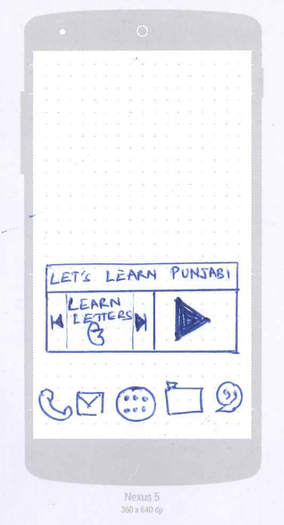 LET'S LEARN PUNJABI
LEARN
LETTERS
Nexus 5
360 x 640 dp